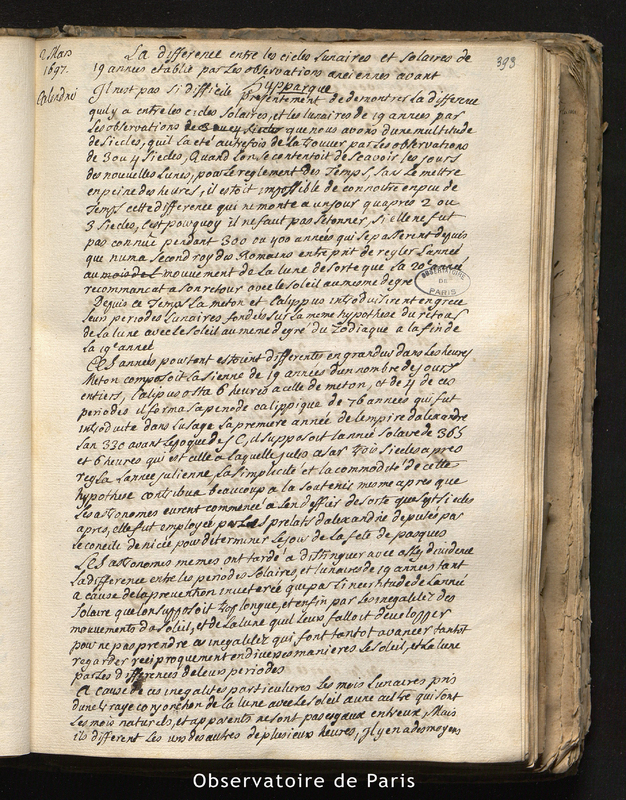 2 Mars
1697.
Calendrié
393
La difference entre les cicles lunaires et solaires de
19 années etablie par les observations anciennes avant
Hypparque
Il n'est pas si difficile presentement de demontrer la difference
quil y a entre les cicles solaires, et les lunaires de 19 années par
les observations que nous avons dune multitude
de siecles, quil la eté autrefois de la trouver par les observations
de 3 ou 4 siecles, Quand lon se contentoit de scavoir les jours
des nouvelles lunes, pour le reglement des temps, sans se mettre
en peine des heures, il estoit impossible de connoitre en peu de
temps cette difference qui ne monte a un jour quaprés 2 ou
3 siecles, c'est pourquoy il ne faut pas s'etonner, si elle ne fut
pas connüe pendant 300 ou 400 années qui se passerent depuis
que numa second roy des Romains entreprit de regler l'année
au mouvement de la lune de sorte que la 20e année
recommancat a son retour avec le soleil au mesme degré
OBSERVATOIRE
DE
PARIS
Depuis ce temps La meton et Calippus introduisirent en grece
leurs periodes lunaires fondées sur la meme hypothese du retour
de la lune avec le soleil au meme degré du Zodiaque a la fin de
la 19e année
Ces années pourtant estoient differentes en grandeur dans les heures
Meton composoit la sienne de 19 années d'un nombre de jours
entiers, Calipus osta 6 heures a celle de meton, et de 4 de ces
periodes il forma sa periode calippique de 76 années qui fut
introduite dans l'usage la premiere année de lempire d'alexandre
l'an 330 avant lepoque de J C, il supposoit l'année solaire de 365
et 6 heures qui est celle a laquelle jules cesar trois siecles apres
regla l'année julienne, la simplicité et la commodité de cette
hypothese contribua beaucoup a la soutenir mesme apres que
les astronomes eurent commencé a s'en deffier de sorte que sept siecles
apres, elle fut employée par les prelats d'alexandrie deputés par
le concile de nicée pour determiner le jour de la feste de pasques
Les astronomes memes ont tardé a distinguer avec assez d'evidence
la difference entre les periodes solaires, et lunaires de 19 années tant
a cause de la prevention inveterée que par l'incertitude de l'année
solaire que lon supposoit trop longue, et enfin par les inegalitez des
mouvements du soleil, et de la lune quil leur falloit developper
pour ne pas prendre ces inegalitez qui font tantot avancer tantot
retarder reciproquement en diverses manieres le soleil, et la lune
par les differences de leurs periodes
A cause de ces inegalites particulieres les mois lunaires pris
dune vraye conjonction de la lune avec le soleil a une autre qui sont
les mois naturels, et apparents ne sont pas egaux entreux, Mais
ils different les uns des autres de plusieurs heures, Il y en a des moyens
Observatoire de Paris